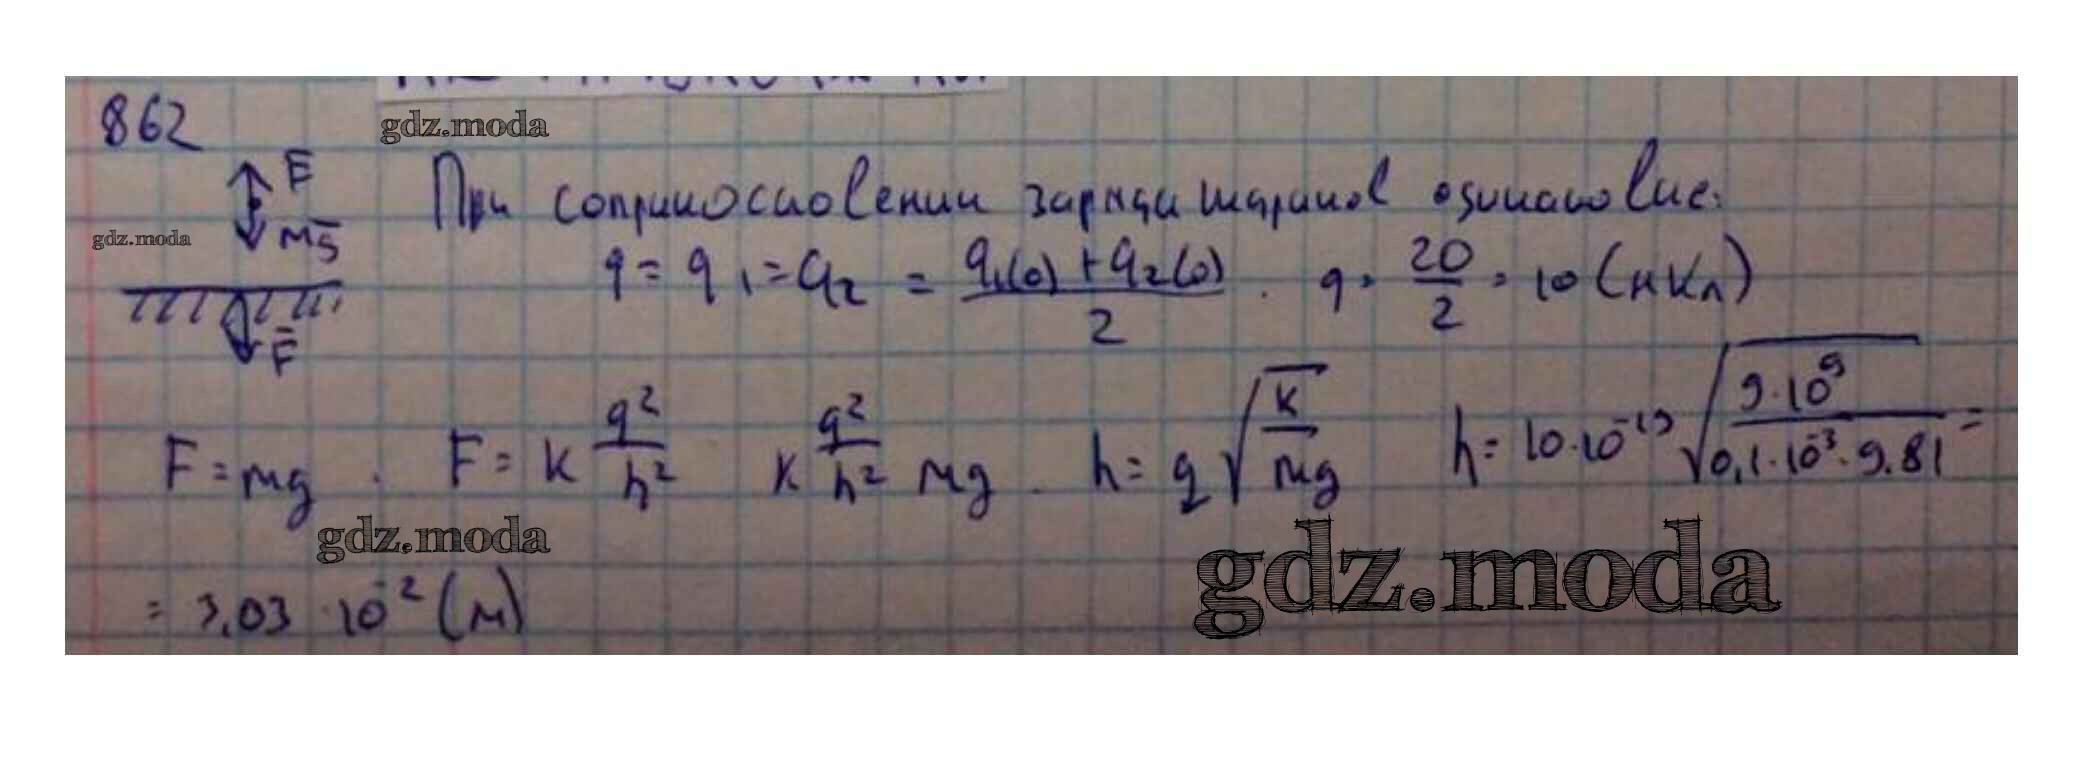 862
gdz.moda
F
При соприкосновении заряды шариков одинаковые:
mg
gdz.moda
q = q1 = q2 = (q1(0) + q2(0))/2 . q = 20/2 = 10 (нКл)
F
F = mg . F = k q²/h² k q²/h² mg . h = q √(k/mg) h = 10·10⁻¹⁹ √(9·10⁹/(0,1·10⁻³·9.81)) =
gdz.moda
= 3,03 · 10⁻² (м)
gdz.moda